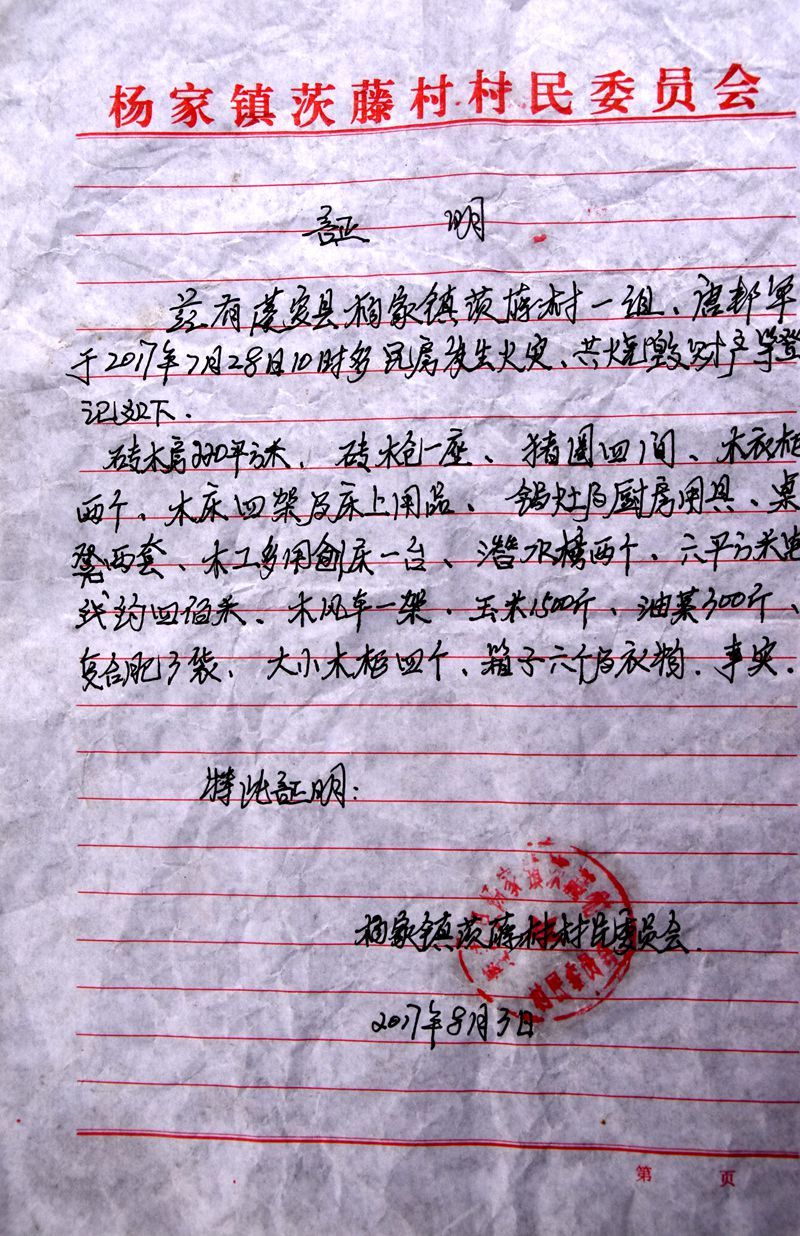 杨家镇茨藤村村民委员会
証 明
兹有蓬安县杨家镇茨藤村一组、唐邦军
于2017年7月28日10时多民房发生火灾、共烧毁财产等登
记如下.
砖木房220平方米、砖木仓一座、猪圈四间、木衣柜
两个、木床四架及床上用品、锅灶及厨房用具、桌
凳两套、木工多用刨床一台、潜水榜两个、六平方米电
线约四佰米、木风车一架、玉米1500斤、油菜300斤、
复合肥3袋、大小木柜四个、箱子六个及衣物、事实.
特此証明:
杨家镇茨藤村村民委员会.
2017年8月3日
第 页